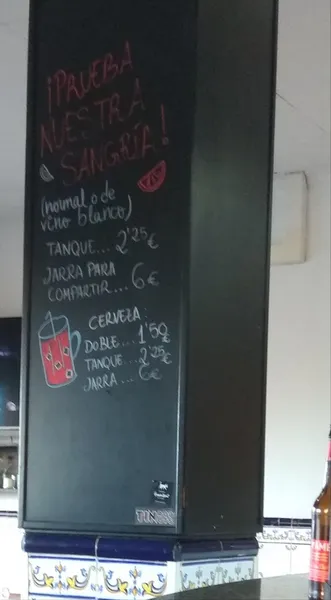 ¡PRUEBA
NUESTRA
SANGRÍA!
(normal o de
vino blanco)
TANQUE... 2'25€
JARRA PARA
COMPARTIR... 6€
CERVEZA:
DOBLE... 1'50€
TANQUE... 2'25€
JARRA... 6€